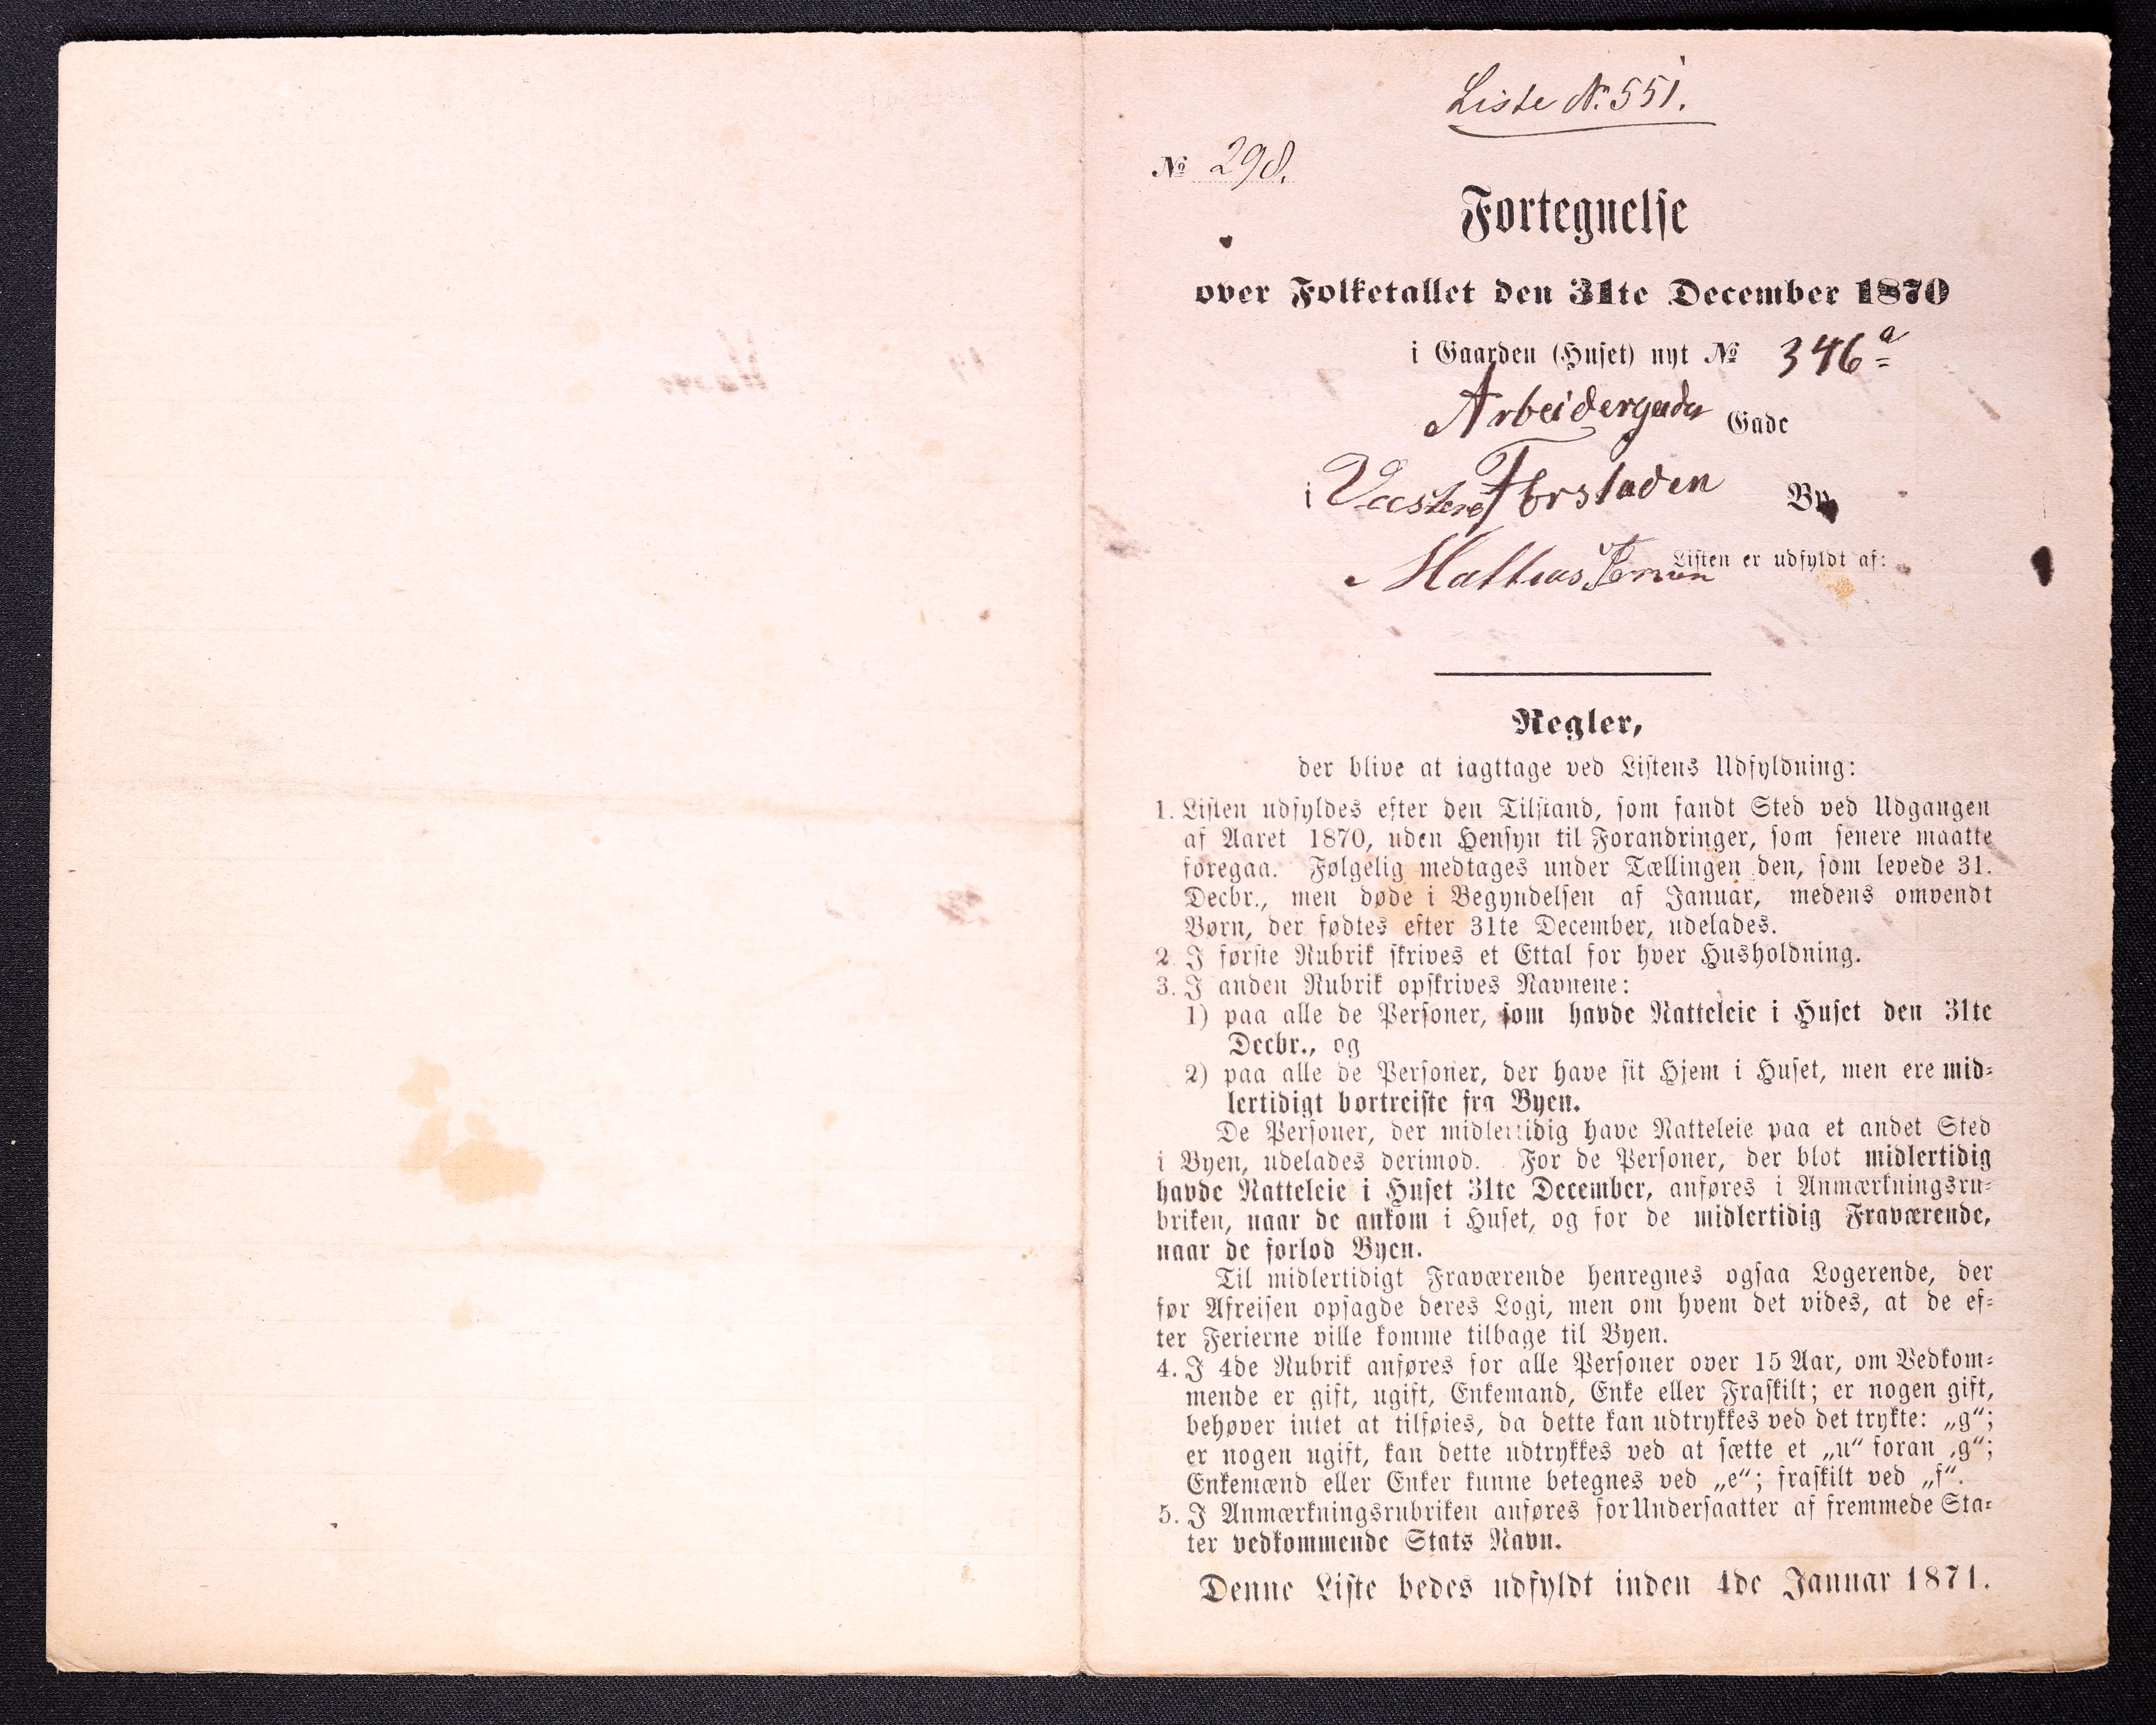 Liste № 551.
№ 298.
Fortegnelse
over Folketallet den 31te December 1870
i Gaarden (Huset) nyt № 346 a
Arbeidergada Gade
i Vestere Forstaden By
Listen er udfyldt af:
Mathias
Regler,
der blive at iagttage ved Listens Udfyldning:
1. Listen udfyldes efter den Tilstand, som fandt Sted ved Udgangen
af Aaret 1870, uden Hensyn til Forandringer, som senere maatte
foregaa. Følgelig medtages under Tællingen den, som levede 31.
Decbr., men døde i Begyndelsen af Januar, medens omvendt
Børn, der fødtes efter 31te December, udelades.
2 I første Rubrik skrives et Ettal for hver Husholdning.
3. I anden Rubrik opskrives Navnene:
1) paa alle de Personer, som havde Natteleie i Huset den 31te
Decbr., og
2) paa alle de Personer, der have sit Hjem i Huset, men ere mid-
lertidigt bortreiste fra Byen.
De Personer, der midlertidig have Natteleie paa et andet Sted
i Byen, udelades derimod. For de Personer, der blot midlertidig
havde Natteleie i Huset 31te December, anføres i Anmærkningsru-
briken, naar de ankom i Huset, og for de midlertidig Fraværende,
naar de forlod Byen.
Til midlertidigt Fraværende henregnes ogsaa Logerende, der
før Afreisen opsagde deres Logi, men om hvem det vides, at de ef-
ter Ferierne ville komme tilbage til Byen.
4. I 4de Rubrik anføres for alle Personer over 15 Aar, om Vedkom-
mende er gift, ugift, Enkemand, Enke eller Fraskilt; er nogen gift,
behøver intet at tilføies, da dette kan udtrykkes ved det trykte: „g“;
er nogen ugift, kan dette udtrykkes ved at sætte et „u“ foran ‚g“;
Enkemænd eller Enker kunne betegnes ved „e“; fraskilt ved „f“.
5. I Anmærkningsrubriken anføres for Undersaatter af fremmede Sta-
ter vedkommende Stats Navn.
Denne Liste bedes udfyldt inden 4de Januar 1871.